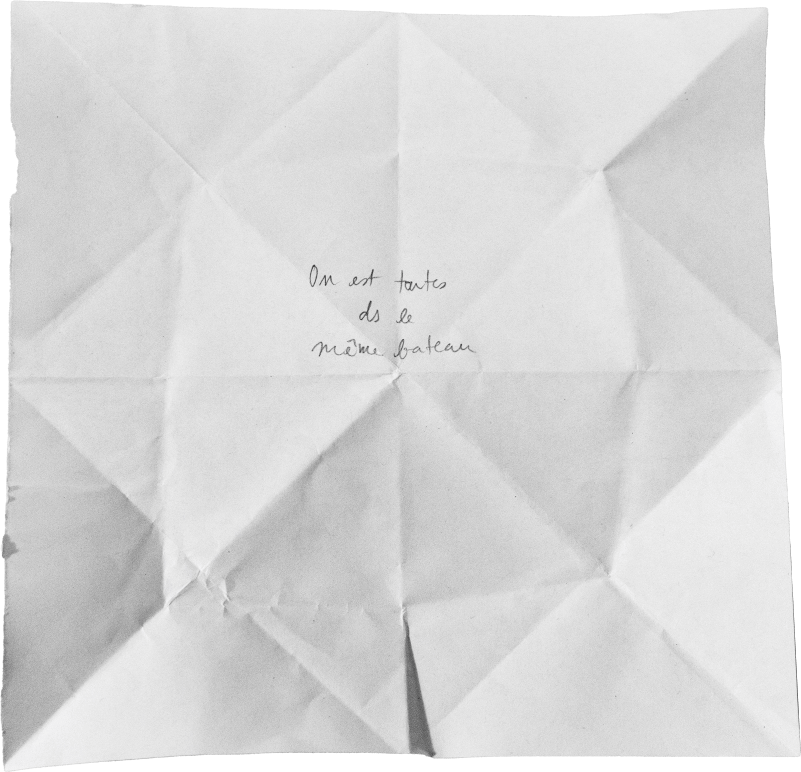 On est toutes
ds le
même bateau